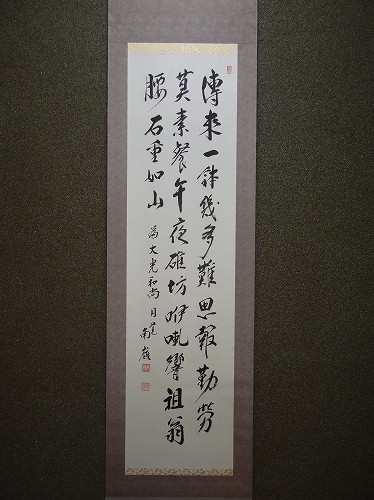 傳來一鉢幾多難思報勤勞
莫素餐午夜碓坊咿響祖翁
腰石重如山
為大光和尚 円覚 南嶺